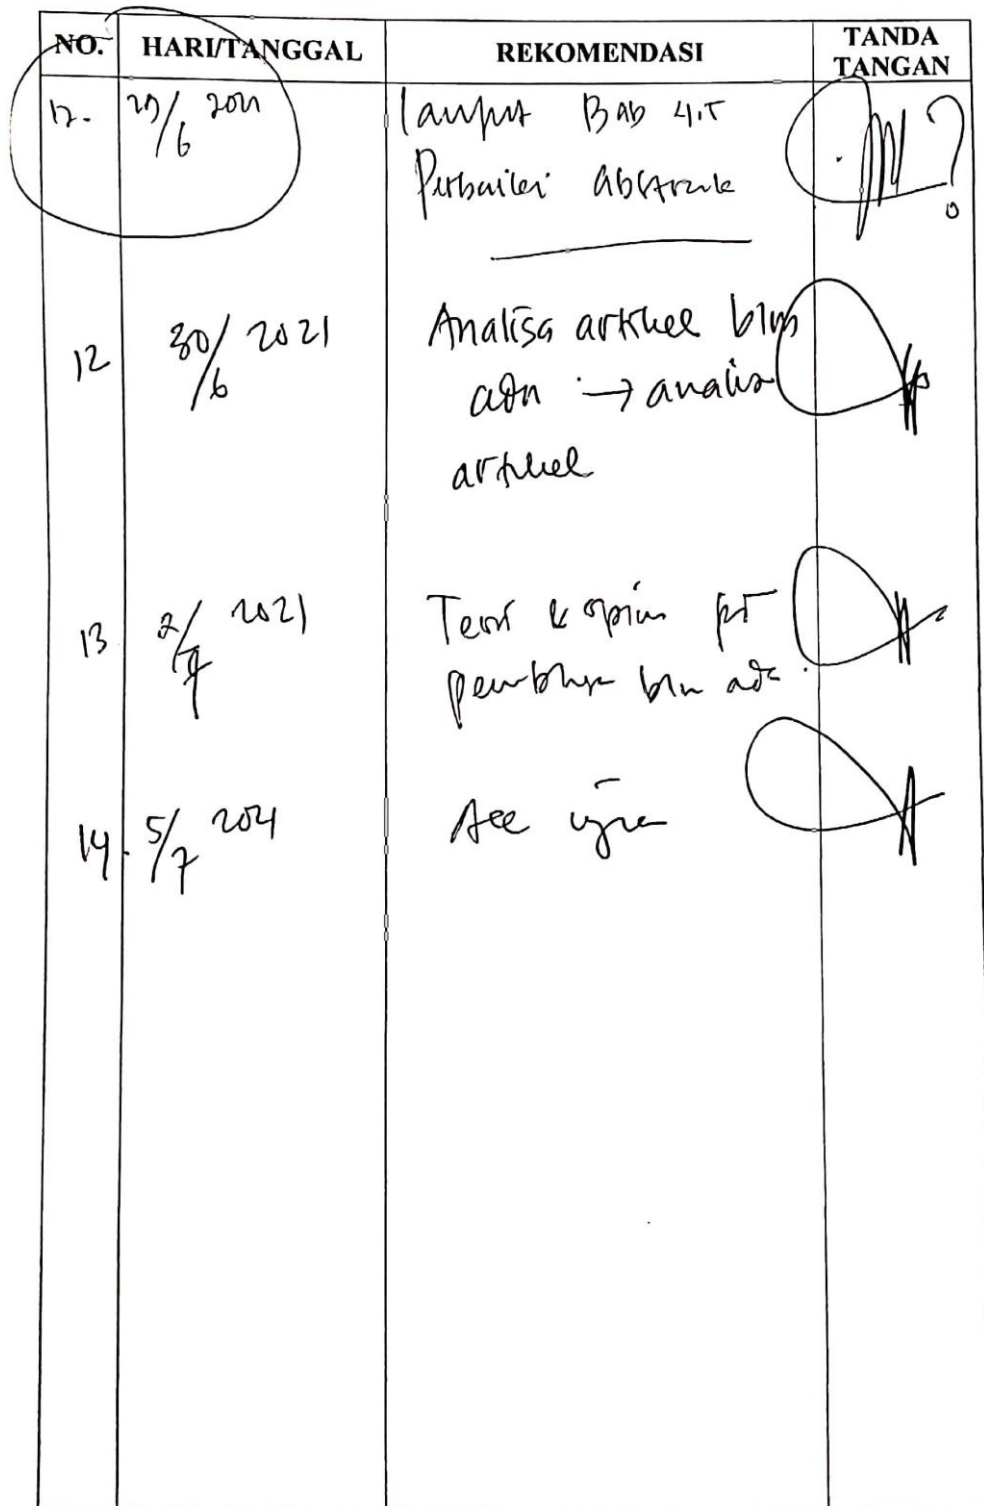 NO. HARI/TANGGAL REKOMENDASI TANDA TANGAN
12. 29/6 2021 lanjut Bab 4.5
Perbaiki abstrak
?
12 30/6 2021 Analisa artikel blm
ada → analisa
artikel
13 2/7 2021 Teori & opini
blm ada.
14. 5/7 2021 Acc ujian